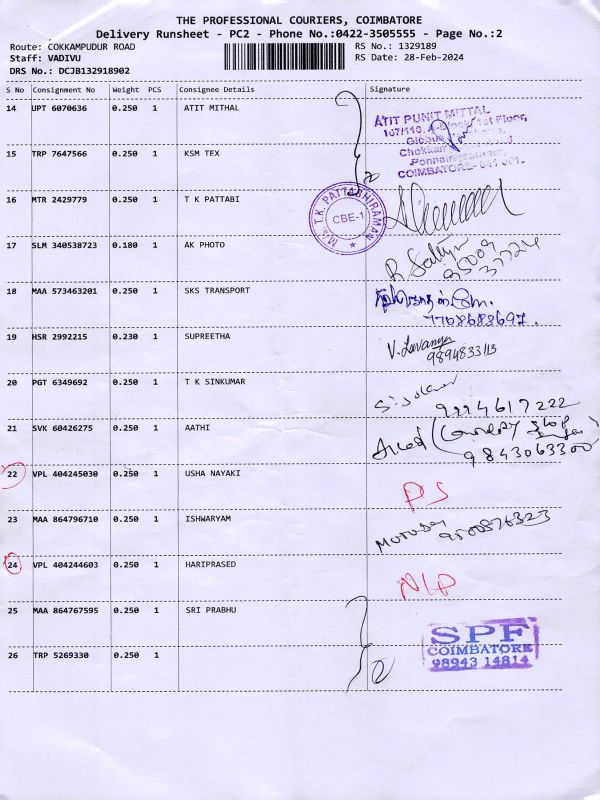 THE PROFESSIONAL COURIERS, COIMBATORE
Delivery Runsheet - PC2 - Phone No.:0422-3505555 - Page No.:2
Route: COKKAMPUDUR ROAD
RS No.: 1329189
Staff: VADIVU
RS Date: 28-Feb-2024
DRS No.: DCJB132918902
S No Consignment No Weight PCS Consignee Details Signature
14 UPT 6070636 0.250 1 ATIT MITHAL
ATIT PUNIT MITTAL
1st Floor,
COIMBATORE- 641 001.
15 TRP 7647566 0.250 1 KSM TEX
2
16 MTR 2429779 0.250 1 T K PATTABI
M/S. T.K. PATTABHIRAMAN
CBE-1
17 SLM 340538723 0.180 1 AK PHOTO
95009
37724
18 MAA 573463201 0.250 1 SKS TRANSPORT
7708683697.
19 HSR 2992215 0.230 1 SUPREETHA
V. Lavanya
9894833113
20 PGT 6349692 0.250 1 T K SINKUMAR
9994617222
21 SVK 60426275 0.250 1 AATHI
9843063300
22 VPL 404245030 0.250 1 USHA NAYAKI
PS
23 MAA 864796710 0.250 1 ISHWARYAM
9500876323
24 VPL 404244603 0.250 1 HARIPRASED
NLP
25 MAA 864767595 0.250 1 SRI PRABHU
SPF
COIMBATORE
98943 14814
26 TRP 5269330 0.250 1
2